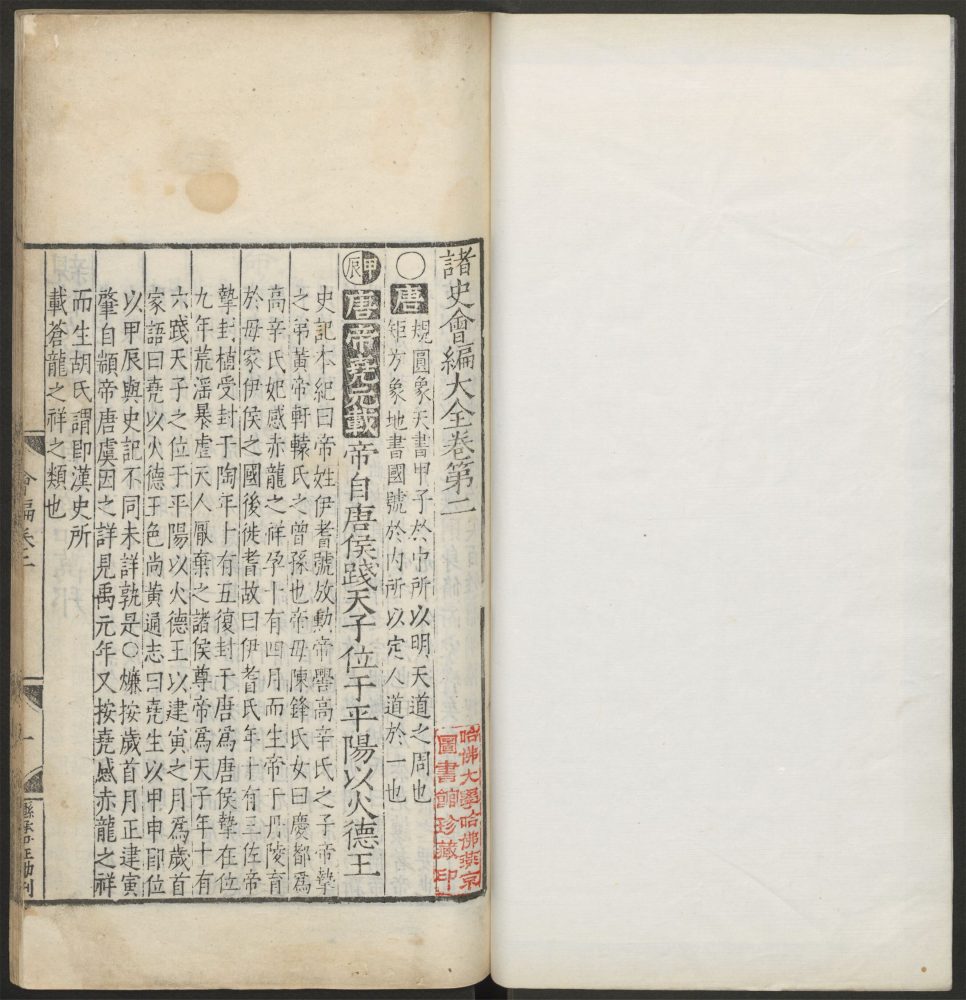 諸史會編大全卷第二
〇唐 規圓象天書甲子於中所以明天道之周也
矩方象地書國號於内所以定人道於一也
甲辰 唐帝堯元載 帝自唐侯踐天子位于平陽以火德王
史記本紀曰帝姓伊耆號放勳帝嚳高辛氏之子帝摯
之弟黃帝軒轅氏之曾孫也帝母陳鋒氏女曰慶都爲
高辛氏妃感赤龍之祥孕十有四月而生帝于丹陵育
於母家伊侯之國後徙耆故曰伊耆氏年十有三佐帝
摯封植受封于陶年十有五復封于唐爲唐侯摯在位
九年荒滛暴虐天人厭棄之諸侯尊帝爲天子年十有
六踐天子之位于平陽以火德王以建寅之月爲歲首
家語曰堯以火德王色尚黄通志曰堯生以甲申即位
以甲辰與史記不同未詳孰是〇爌按歲首月正建寅
肇自顓帝唐虞因之詳見禹元年又按堯感赤龍之祥
而生胡氏謂即漢史所
載蒼龍之祥之類也
會編卷二
一
哈佛大學哈佛燕京
圖書館珍藏印